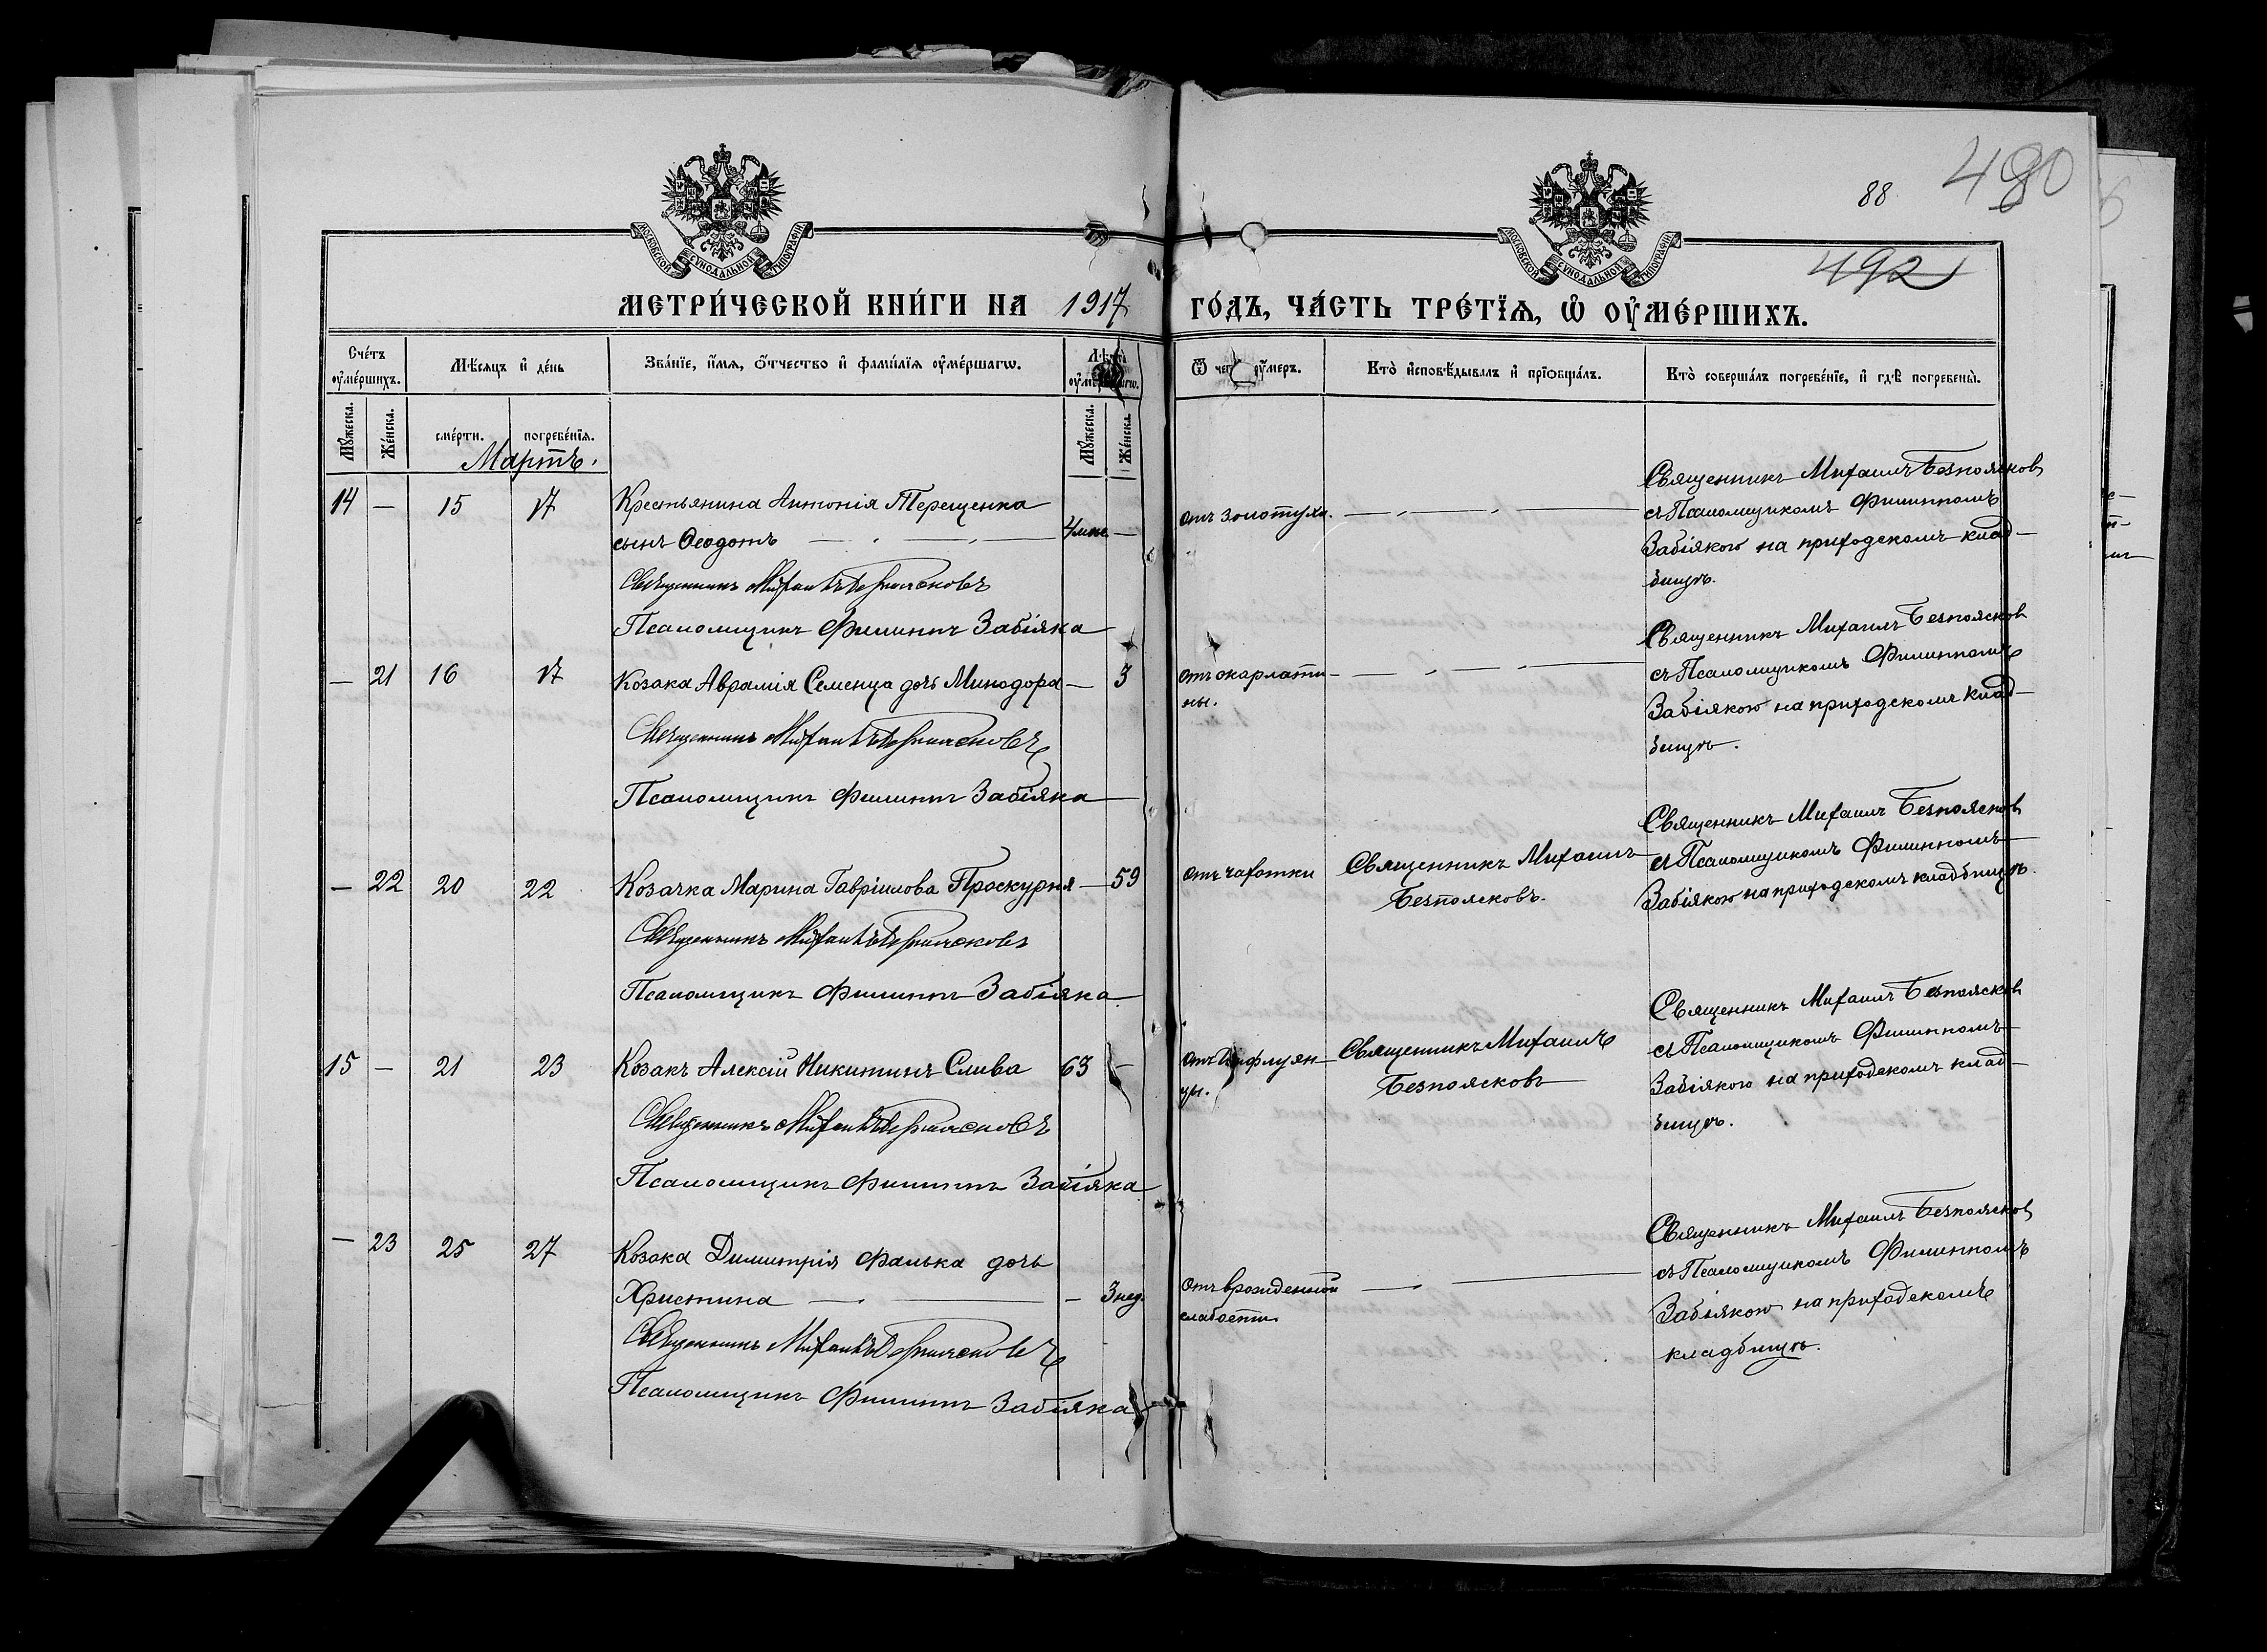 88
480
492
МОСКОВСКОЙ СУНОДАЛЬНОЙ ТИПОГРАФІИ
МОСКОВСКОЙ СУНОДАЛЬНОЙ ТИПОГРАФІИ
МЕТРИ́ЧЕСКОЙ КНИ́ГИ НА 1917 ГО́ДЪ, ЧА́СТЬ ТРЕ́ТЇѦ, Ѡ҆ ОУ҆МЕ́РШИХЪ.
Сче́тъ оу҆ме́ршихъ.
Мѣ́сяцъ и҆ де́нь
Зва́нїе, и҆́мя, ѻ҆́тчество и҆ фами́лїя оу҆ме́ршагѡ.
Лѣ́та оу҆ме́ршагѡ.
Ѿ чегѡ̀ оу҆́меръ.
Кто̀ и҆сповѣ́дывалъ и҆ прїѻбща́лъ.
Кто̀ соверша́лъ погребе́нїе, и҆ гдѣ̀ погребены̀.
Мꙋ́жеска. Же́нска. сме́рти. погребе́нїя. Мꙋ́жеска. Же́нска.
Мартъ.
14 — 15 17 Крестьянина Антонія Терещенка
сынъ Ѳеодотъ — 4 мѣс. —
Священникъ Михаилъ Безпоясковъ
Псаломщикъ Филиппъ Забіяка
отъ золотухи. —
Священникъ Михаилъ Безпоясков
съ Псаломщикомъ Филиппомъ
Забіякою на приходскомъ клад-
бищѣ.
— 21 16 17 Козака Аврамія Семенца дочь Минодора — 3
Священникъ Михаилъ Безпоясковъ
Псаломщикъ Филиппъ Забіяка
отъ скарлати-
ны.
Священникъ Михаилъ Безпоясков
съ Псаломщикомъ Филиппомъ
Забіякою на приходскомъ клад-
бищѣ.
— 22 20 22 Козачка Марина Гавріилова Проскурня — 59
Священникъ Михаилъ Безпоясковъ
Псаломщикъ Филиппъ Забіяка
отъ чахотки
Священникъ Михаилъ
Безпоясковъ.
Священникъ Михаилъ Безпоясков
съ Псаломщикомъ Филиппомъ
Забіякою на приходскомъ кладбищѣ.
15 — 21 23 Козакъ Алексій Никитинъ Слива 63 —
Священникъ Михаилъ Безпоясковъ
Псаломщикъ Филиппъ Забіяка
отъ Инфлуэн-
цы.
Священникъ Михаилъ
Безпоясковъ
Священникъ Михаилъ Безпоясков
съ Псаломщикомъ Филиппомъ
Забіякою на приходскомъ клад-
бищѣ.
— 23 25 27 Козака Димитрія Фалька дочь
Христина — 3 нед.
Священникъ Михаилъ Безпоясковъ
Псаломщикъ Филиппъ Забіяка
отъ врожденной
слабости
Священникъ Михаилъ Безпоясков
съ Псаломщикомъ Филиппомъ
Забіякою на приходскомъ
кладбищѣ.